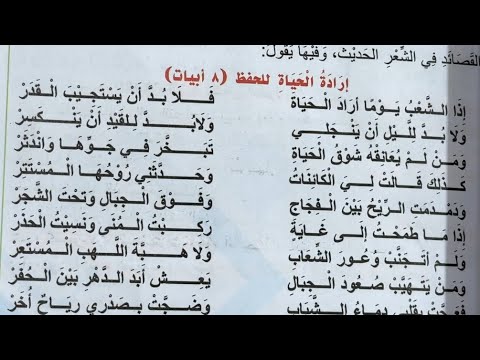 القَصَائِدِ فِي الشِّعْرِ الْحَدِيْثِ، وَفِيْهَا يَقُولُ:
إِرَادَةُ الْحَيَاةِ للحفظ (٨ أبيات)
إِذَا الشَّعْبُ يَوْمًا أَرَادَ الْحَيَاةَ فَلَا بُدَّ أَنْ يَسْتَجِيْبَ الْقَدَرْ
وَلَا بُدَّ لِلَيْلِ أَنْ يَنْجَلِي وَلَابُدَّ لِلْقَيْدِ أَنْ يَنْكَسِرْ
وَمَنْ لَمْ يُعَانِقْهُ شَوْقُ الْحَيَاةِ تَبَخَّرَ فِي جَوِّهَا وَانْدَثَرْ
كَذَلِكَ قَالَتْ لِيَ الْكَائِنَاتُ وَحَدَّثَنِي رُوْحُهَا الْمُسْتَتِرْ
وَدَمْدَمَتِ الرِّيْحُ بَيْنَ الْفِجَاجِ وَفَوْقَ الْجِبَالِ وَتَحْتَ الشَّجَرْ
إِذَا مَا طَمَحْتُ إِلَى غَايَةٍ رَكِبْتُ الْمُنَى وَنَسِيْتُ الْحَذَرْ
وَلَمْ أَتَجَنَّبْ وُعُورَ الشِّعَابِ وَلَا هَبَّةَ اللَّهَبِ الْمُسْتَعِرْ
وَمَنْ يَتَهَيَّبْ صُعُودَ الْجِبَالِ يَعِشْ أَبَدَ الدَّهْرِ بَيْنَ الْحُفَرْ
فَعَجَّتْ بِقَلْبِي دِمَاءُ الشَّبَابِ وَضَجَّتْ بِصَدْرِي رِيَاحٌ أُخَرْ